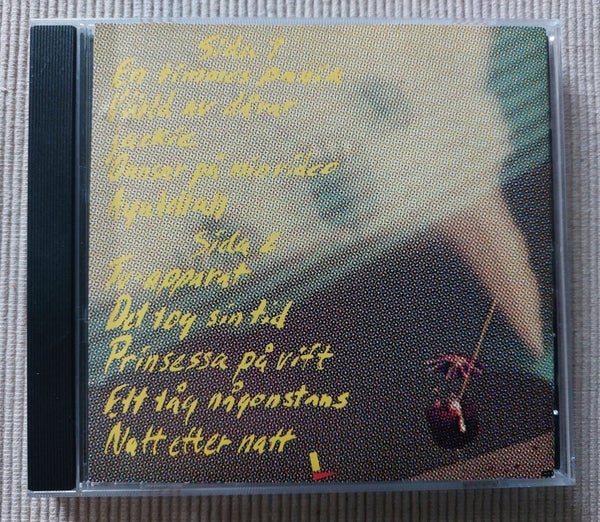 Sida 1
En timmes panik
av dårar
Jackie
på min video
Sida 2
TV-apparat
Det tog sin tid
Prinsessa på vift
Ett tåg någonstans
Natt efter natt